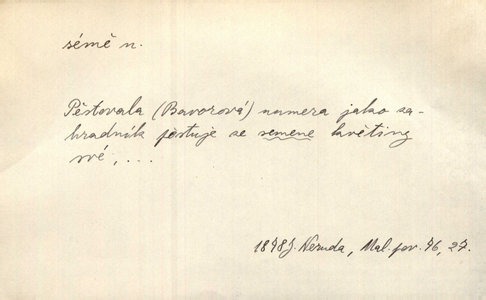 sémě n.
Pěstovala (Bavorová) numera jako za-
hradník pěstuje ze semene květiny
své, ...
1878 J. Neruda, Mal. pov. 76, 27.